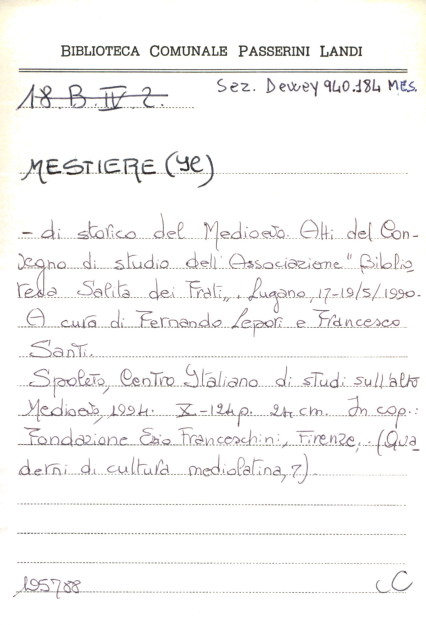 BIBLIOTECA COMUNALE PASSERINI LANDI
18 B IV 2.
Sez. Dewey 940.184 MES.
MESTIERE (Il)
- di storico del Medioevo. Atti del Con-
vegno di studio dell'Associazione "Biblio
teca Salita dei Frati„. Lugano, 17-19/5/1990.
A cura di Fernando Lepori e Francesco
Santi.
Spoleto, Centro Italiano di studi sull'alto
Medioevo, 1994. X-124p. 24 cm. In cop.:
Fondazione Ezio Franceschini, Firenze. (Qua
derni di cultura mediolatina, 7).
195788
CC